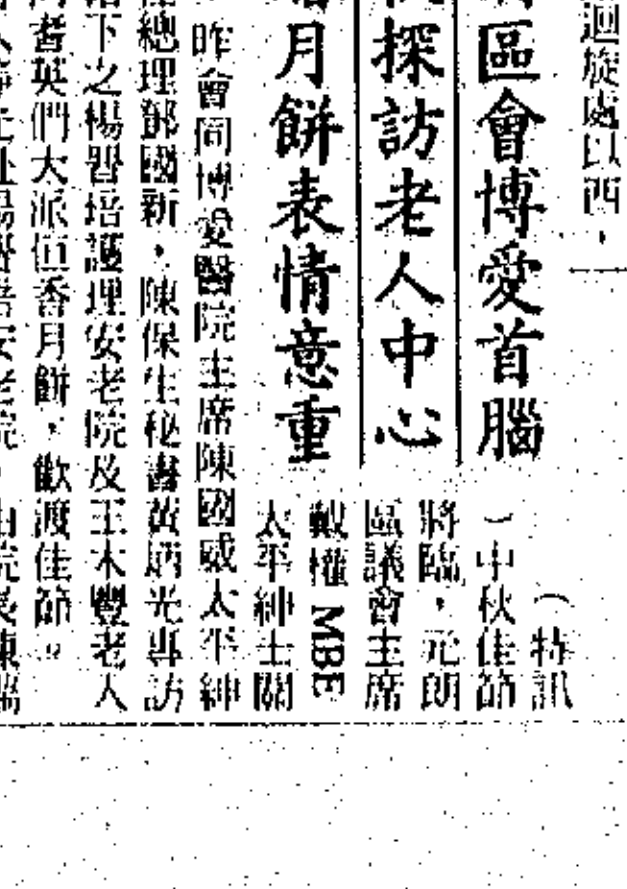 迴旋處以西,
區會博愛首腦
探訪老人中心
月餅表情意重
(特訊
)中秋佳節
將臨,元朗
區議會主席
戴權 MBE
太平紳士關
昨會同博愛醫院主席陳國威太平紳
總理鄧國新,陳保生秘書黃炳光專訪
下之楊晉培護理安老院及王木豐老人
耆英們大派恒香月餅,歡渡佳節。